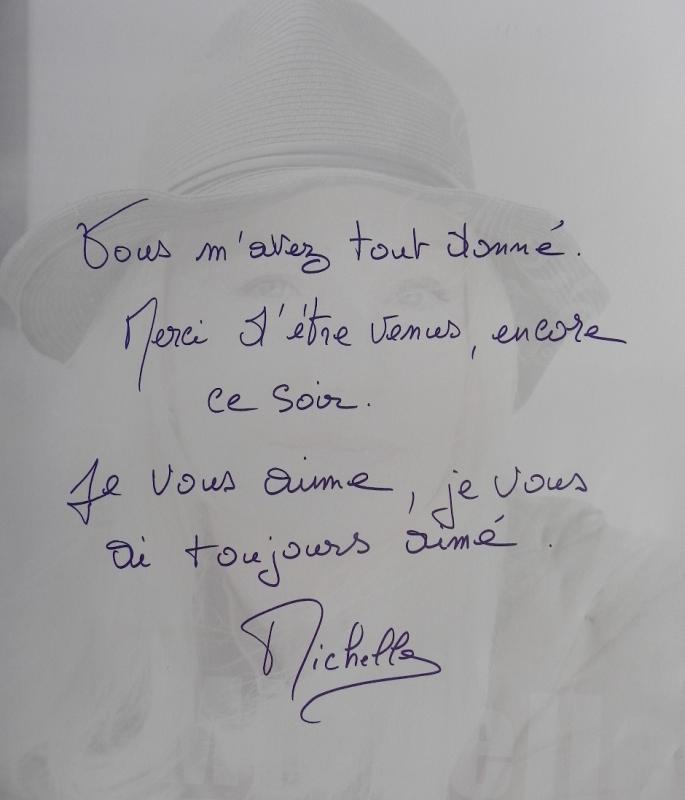 Vous m'avez tout donné.
Merci d'être venus, encore
ce soir.
Je vous aime, je vous
ai toujours aimé.
Michelle